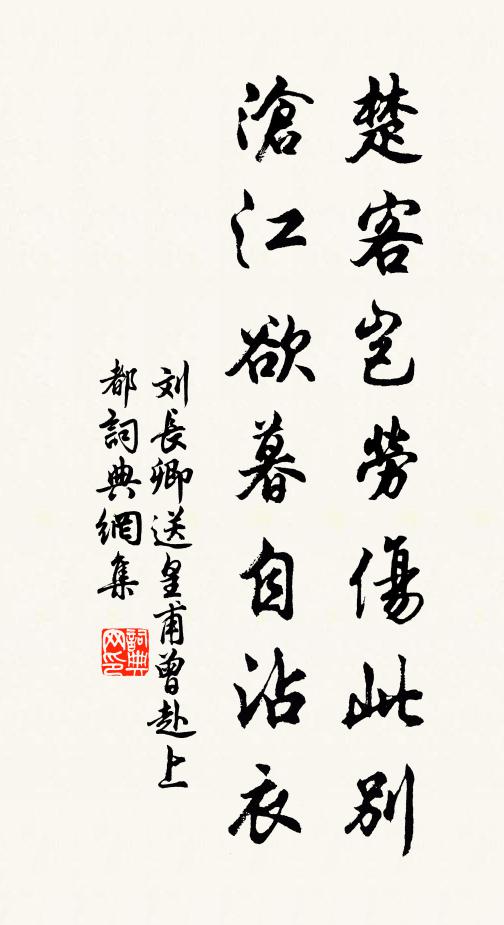 楚客岂勞傷此别
滄江欲暮自沾衣
刘長卿送皇甫曾赴上
都詞典網集
詞典网印